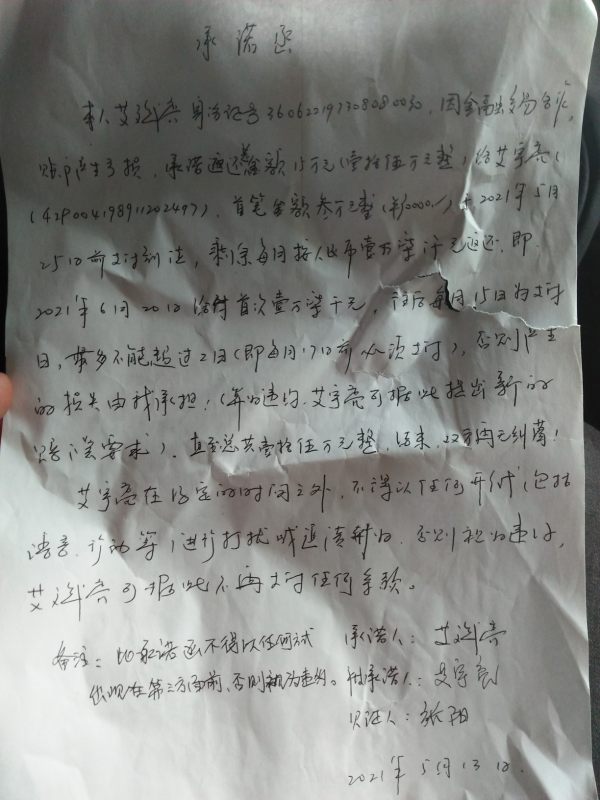 承诺函
本人艾 亮 身份证号360622197308080030，因金融交易合作，
账户产生亏损，承诺返还金额15万元(壹拾伍万元整)给艾宇亮(
(429004198911202497)，首笔金额叁万整(¥30000./)于2021年5月
25日前支付到法，剩余每月按人民币壹万柒仟元返还，即
2021年6月20日给付首次壹万柒千元，往后每月15日为支付
日，最多不能超过2日(即每月17日前必须支付)，否则产生
的损失由我承担!(算为违约，艾宇亮可据此提出新的
赔偿要求)，直至总共壹拾伍万元整，结束，双方再无纠葛!
艾宇亮在约定的时间之外，不得以任何形式(包括
语音、 等)进行打扰或追债行为，否则视为违约，
艾 亮可据此不再支付任何余款。
备注：此承诺函不得以任何方式
出现在第三方面前，否则视为违约。
承诺人：艾 亮
被承诺人：艾宇亮
见证人：张翔
2021年5月13日